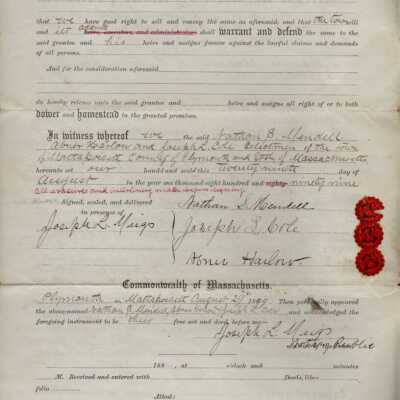 that we have good right to sell and convey the same as aforesaid; and that the town will
and its agents heirs, executors, and administrators shall warrant and defend the same to the
said grantee and his heirs and assigns forever against the lawful claims and demands
of all persons.
And for the consideration aforesaid
do hereby release unto the said grantee and heirs and assigns all right of or to both
dower and homestead in the granted premises.
In witness whereof we the said Nathan B. Mendell
Abner Harlow and Joseph L. Cole Selectmen of the town
of Mattapoisett County of Plymouth and of Massachusetts
hereunto set our hands and seals this twenty ninth day of
August in the year one thousand eight hundred and eighty ninety nine
Signed, sealed, and delivered
in presence of
Joseph L. Meigs
Nathan B. Mendell
Joseph L. Cole
Abner Harlow
Commonwealth of Massachusetts.
Plymouth ss. Mattapoisett August 29th 1899. Then personally appeared
the above-named Nathan B. Mendell, Abner Harlow & Joseph L. Cole and acknowledged the
foregoing instrument to be their free act and deed, before me,
Joseph L. Meigs
Notary Public
188 , at o'clock and minutes
M. Received and entered with Deeds, libro
folio
Attest: